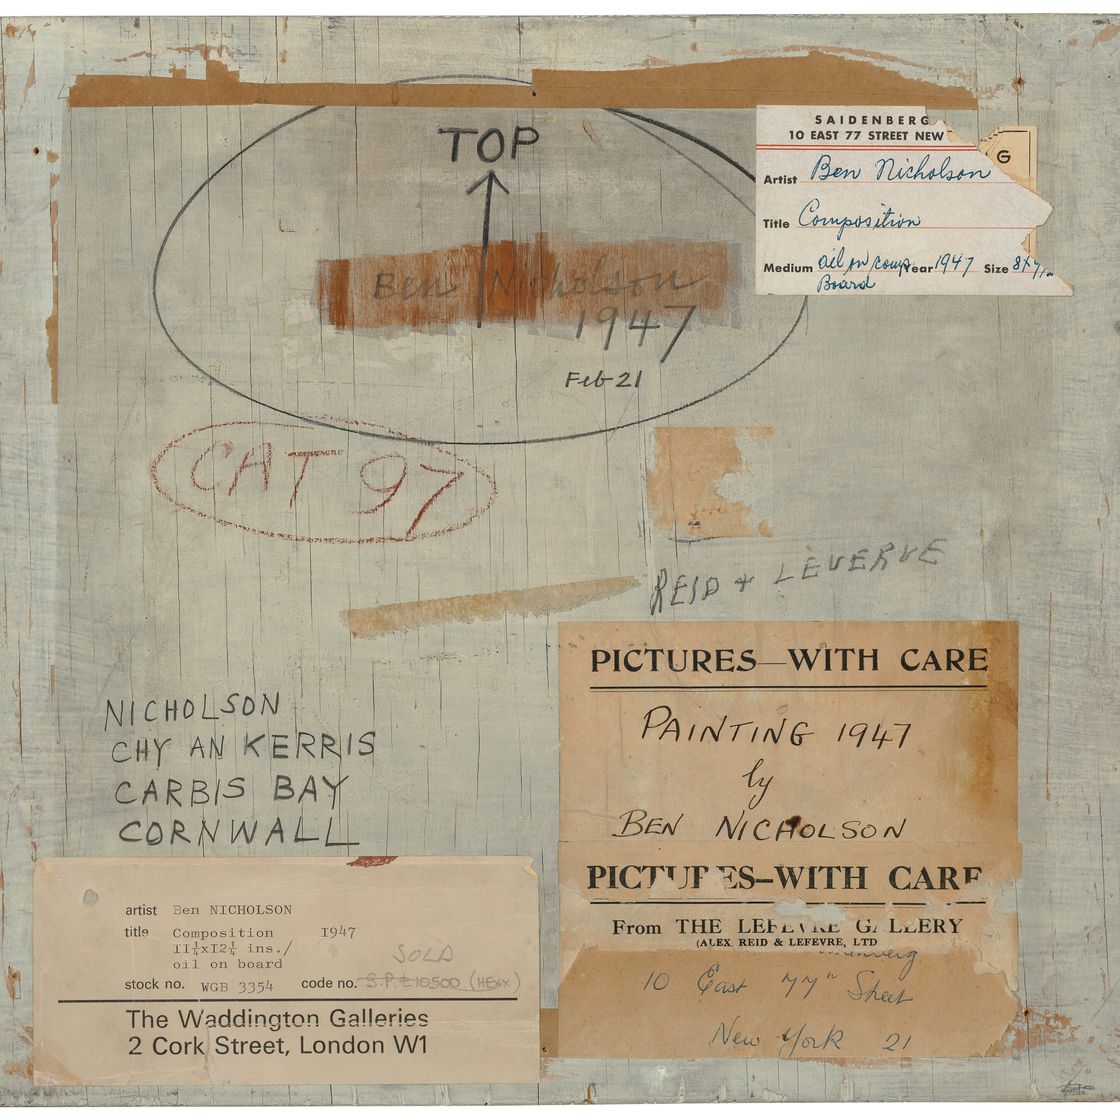 TOP
Ben Nicholson
1947
Feb 21
SAIDENBERG
10 EAST 77 STREET NEW
G
Artist Ben Nicholson
Title Composition
Medium oil on comp Year 1947 Size 8x
Board
CAT 97
REID + LEVERVE
PICTURES—WITH CARE
PAINTING 1947
by
BEN NICHOLSON
NICHOLSON
CHY AN KERRIS
CARBIS BAY
CORNWALL
PICTURES—WITH CARE
From THE LEFEVRE GALLERY
(ALEX. REID & LEFEVRE, LTD
10 East 77th Street
New York 21
artist Ben NICHOLSON
title Composition 1947
11¼x12¼ ins./
oil on board
SOLD
stock no. WGB 3354 code no. S.P. £10500 (HEXX)
The Waddington Galleries
2 Cork Street, London W1